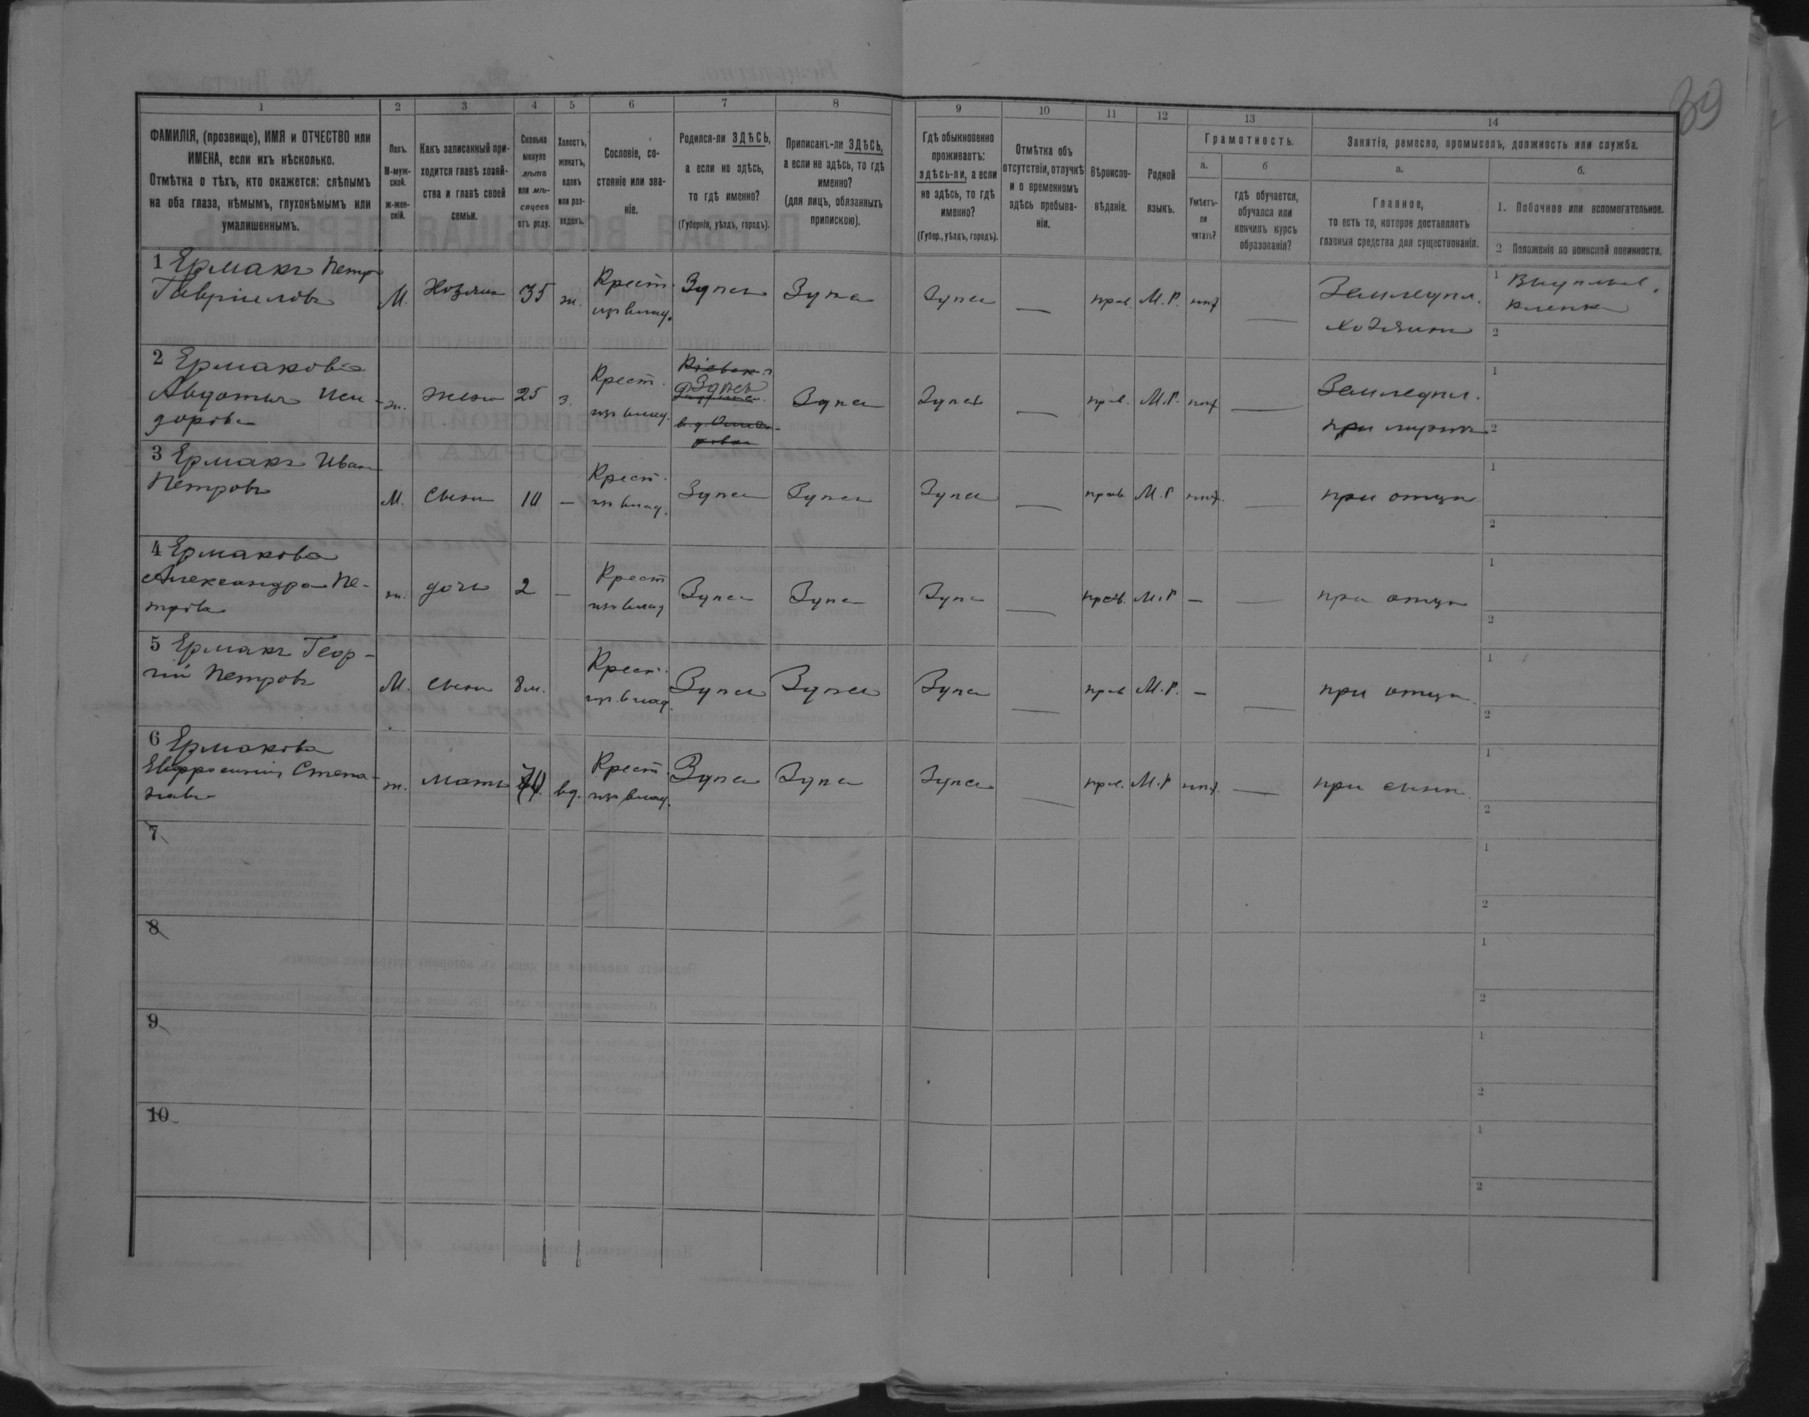 39
1 2 3 4 5 6 7 8 9 10 11 12 13 14
ФАМИЛІЯ, (прозвище), ИМЯ и ОТЧЕСТВО или
ИМЕНА, если ихъ нѣсколько.
Отмѣтка о тѣхъ, кто окажется: слѣпымъ
на оба глаза, нѣмымъ, глухонѣмымъ или
умалишеннымъ.
Полъ.
М-муж-
ской.
ж-жен-
скій.
Какъ записанный при-
ходится главѣ хозяй-
ства и главѣ своей
семьи.
Сколько
минуло
лѣтъ
или мѣ-
сяцевъ
отъ роду.
Холостъ,
женатъ,
вдовъ
или раз-
веденъ.
Сословіе, со-
стояніе или зва-
ніе.
Родился-ли ЗДѢСЬ,
а если не здѣсь,
то гдѣ именно?
(Губернія, уѣздъ, городъ).
Приписанъ-ли ЗДѢСЬ,
а если не здѣсь, то гдѣ
именно?
(для лицъ, обязанныхъ
припискою).
Гдѣ обыкновенно
проживаетъ:
здѣсь-ли, а если
не здѣсь, то гдѣ
именно?
(Губер., уѣздъ, городъ).
Отмѣтка объ
отсутствіи, отлучкѣ
и о временномъ
здѣсь пребыва-
ніи.
Вѣроиспо-
вѣданіе.
Родной
языкъ.
Грамотность.
а.
Умѣетъ-
ли
читать?
б
гдѣ обучается,
обучался или
кончилъ курсъ
образованія?
Занятіе, ремесло, промыселъ, должность или служба.
а.
Главное,
то есть то, которое доставляетъ
главныя средства для существованія.
б.
1. Побочное или вспомогательное.
2 Положеніе по воинской повинности.
1 Ермакъ Петръ
Гавріиловъ
М. Хозяинъ 35 ж. Крест. изъ влад. Здѣсь Здѣсь Здѣсь — прав. М.Р. нѣт —
Земледѣл.
хозяинъ
1
2
2 Ермакова
Авдотья Иси-
дорова
ж. жена 25 з. Крест. изъ влад. Здѣсь Здѣсь Здѣсь — прав. М.Р. нѣт —
Земледѣл.
при мужѣ
1
2
3 Ермакъ Иванъ
Петровъ
М. сынъ 10 — Крест. изъ влад. Здѣсь Здѣсь Здѣсь — прав М.Р нѣт. — при отцѣ
1
2
4 Ермакова
Александра Пе-
трова
ж. дочь 2 — Крест изъ влад Здѣсь Здѣсь Здѣсь — прав. М.Р — — при отцѣ
1
2
5 Ермакъ Геор-
гій Петровъ
М. сынъ 8 м. Крест. изъ влад. Здѣсь Здѣсь Здѣсь — прав М.Р. — — при отцѣ
1
2
6 Ермакова
Евфросинія Степа-
нова
ж. мать вд. Крест. изъ влад. Здѣсь Здѣсь Здѣсь — прав. М.Р нѣт. — при сынѣ
1
2
7
1
2
8
1
2
9
1
2
10
1
2